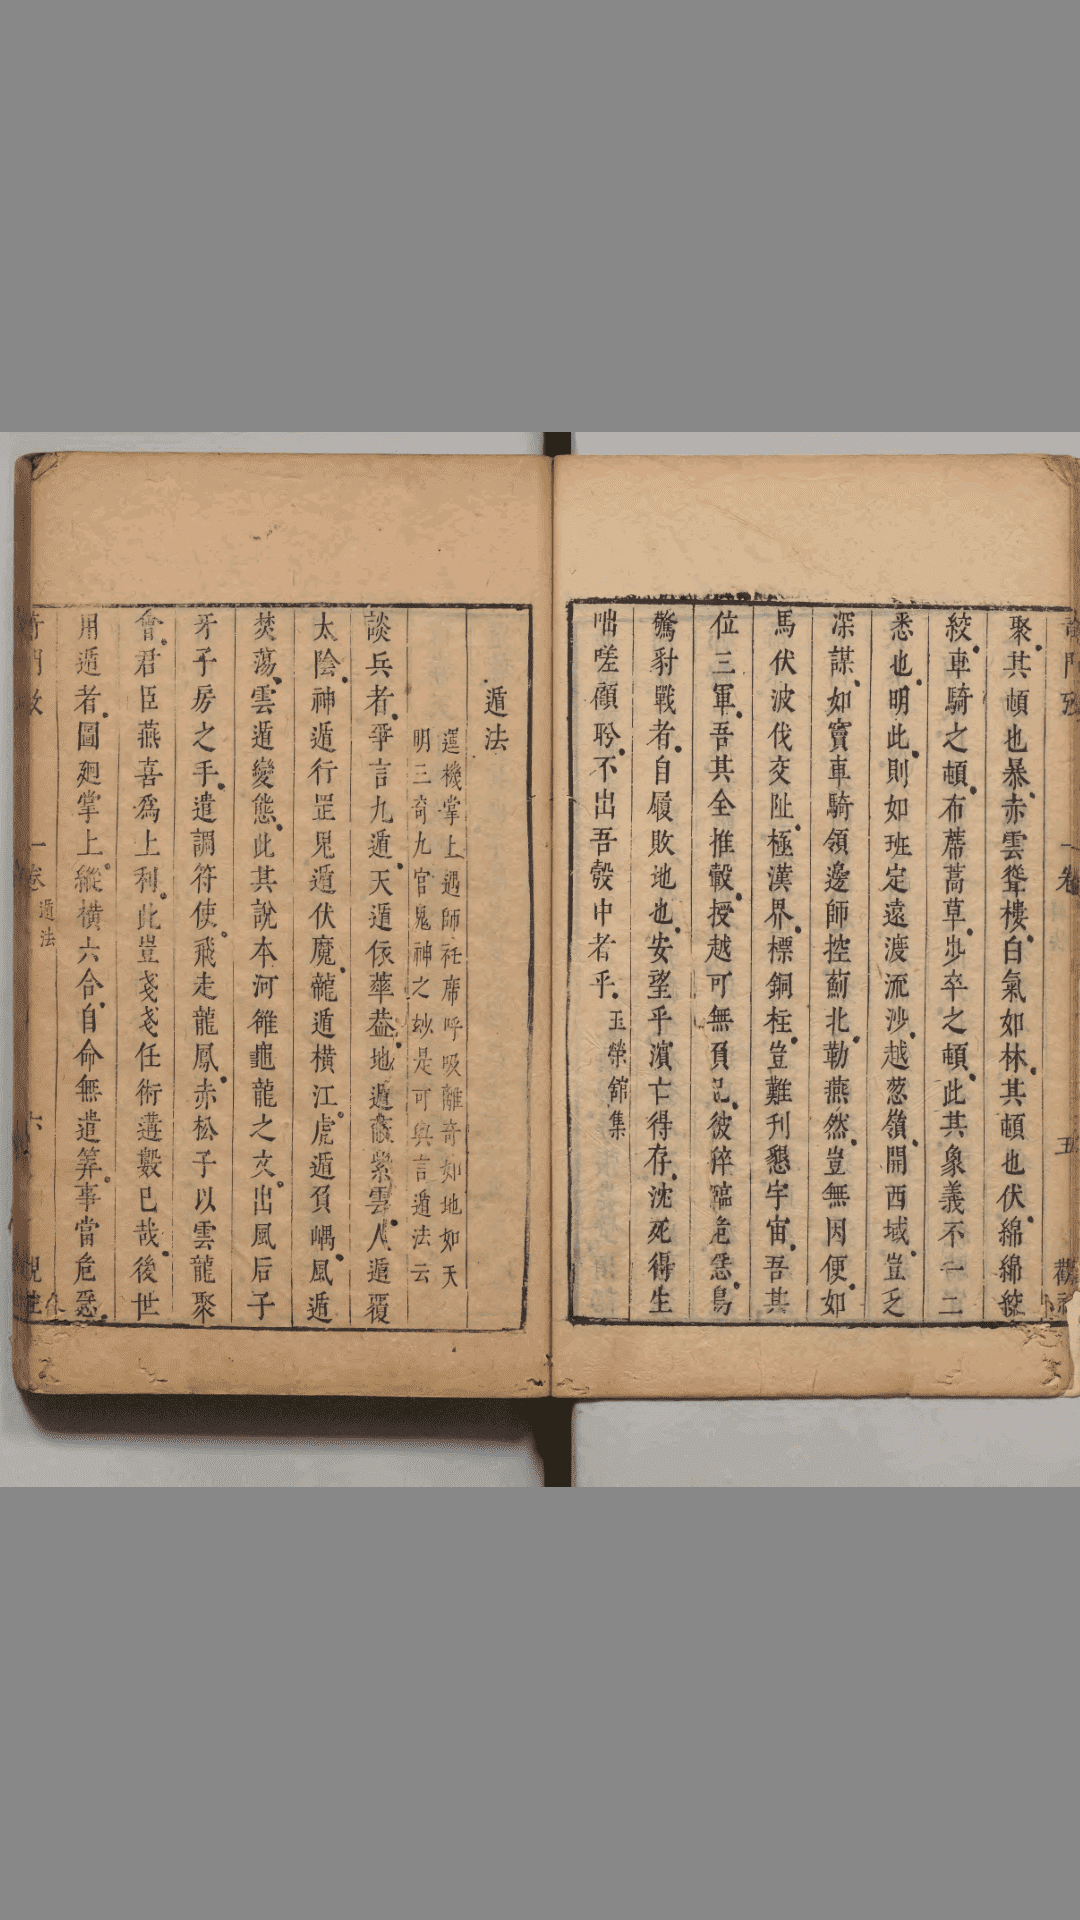 一卷
五
聚其頓也暴赤雲聳樓白氣如林其頓也伏綿綿綻
絞車騎之頓布蓆蒿草步卒之頓此其象義不一二
悉也明此則如班定遠渡流沙越葱嶺開西域豈乏
深謀如竇車騎領邊師控薊北勒燕然豈無因便如
馬伏波伐交阯極漢界標銅柱豈難刊懇宇宙吾其
位三軍吾其全推轂授越可無負已彼猝臨危恁鳥
驚豺戰者自履敗地也安望乎濱亡得存沈死得生
咄嗟顧聆不出吾彀中者乎 玉榮舘集
遁法
運機掌上遇師衽席呼吸離奇如地如天
明三奇九宮鬼神之玅是可與言遁法云
談兵者爭言九遁天遁依華葢地遁蔽紫雲人遁覆
太陰神遁行罡鬼遁伏魔龍遁橫江虎遁負嵎風遁
焚蕩雲遁變態此其說本河雒龜龍之文出風后子
牙子房之手遣調符使飛走龍鳳赤松子以雲龍聚
會君臣燕喜爲上利此豈戔戔任術遘數已哉後世
用遁者圖廻掌上縱橫六合自命無遣筭事當危惡
一卷
遁法
六